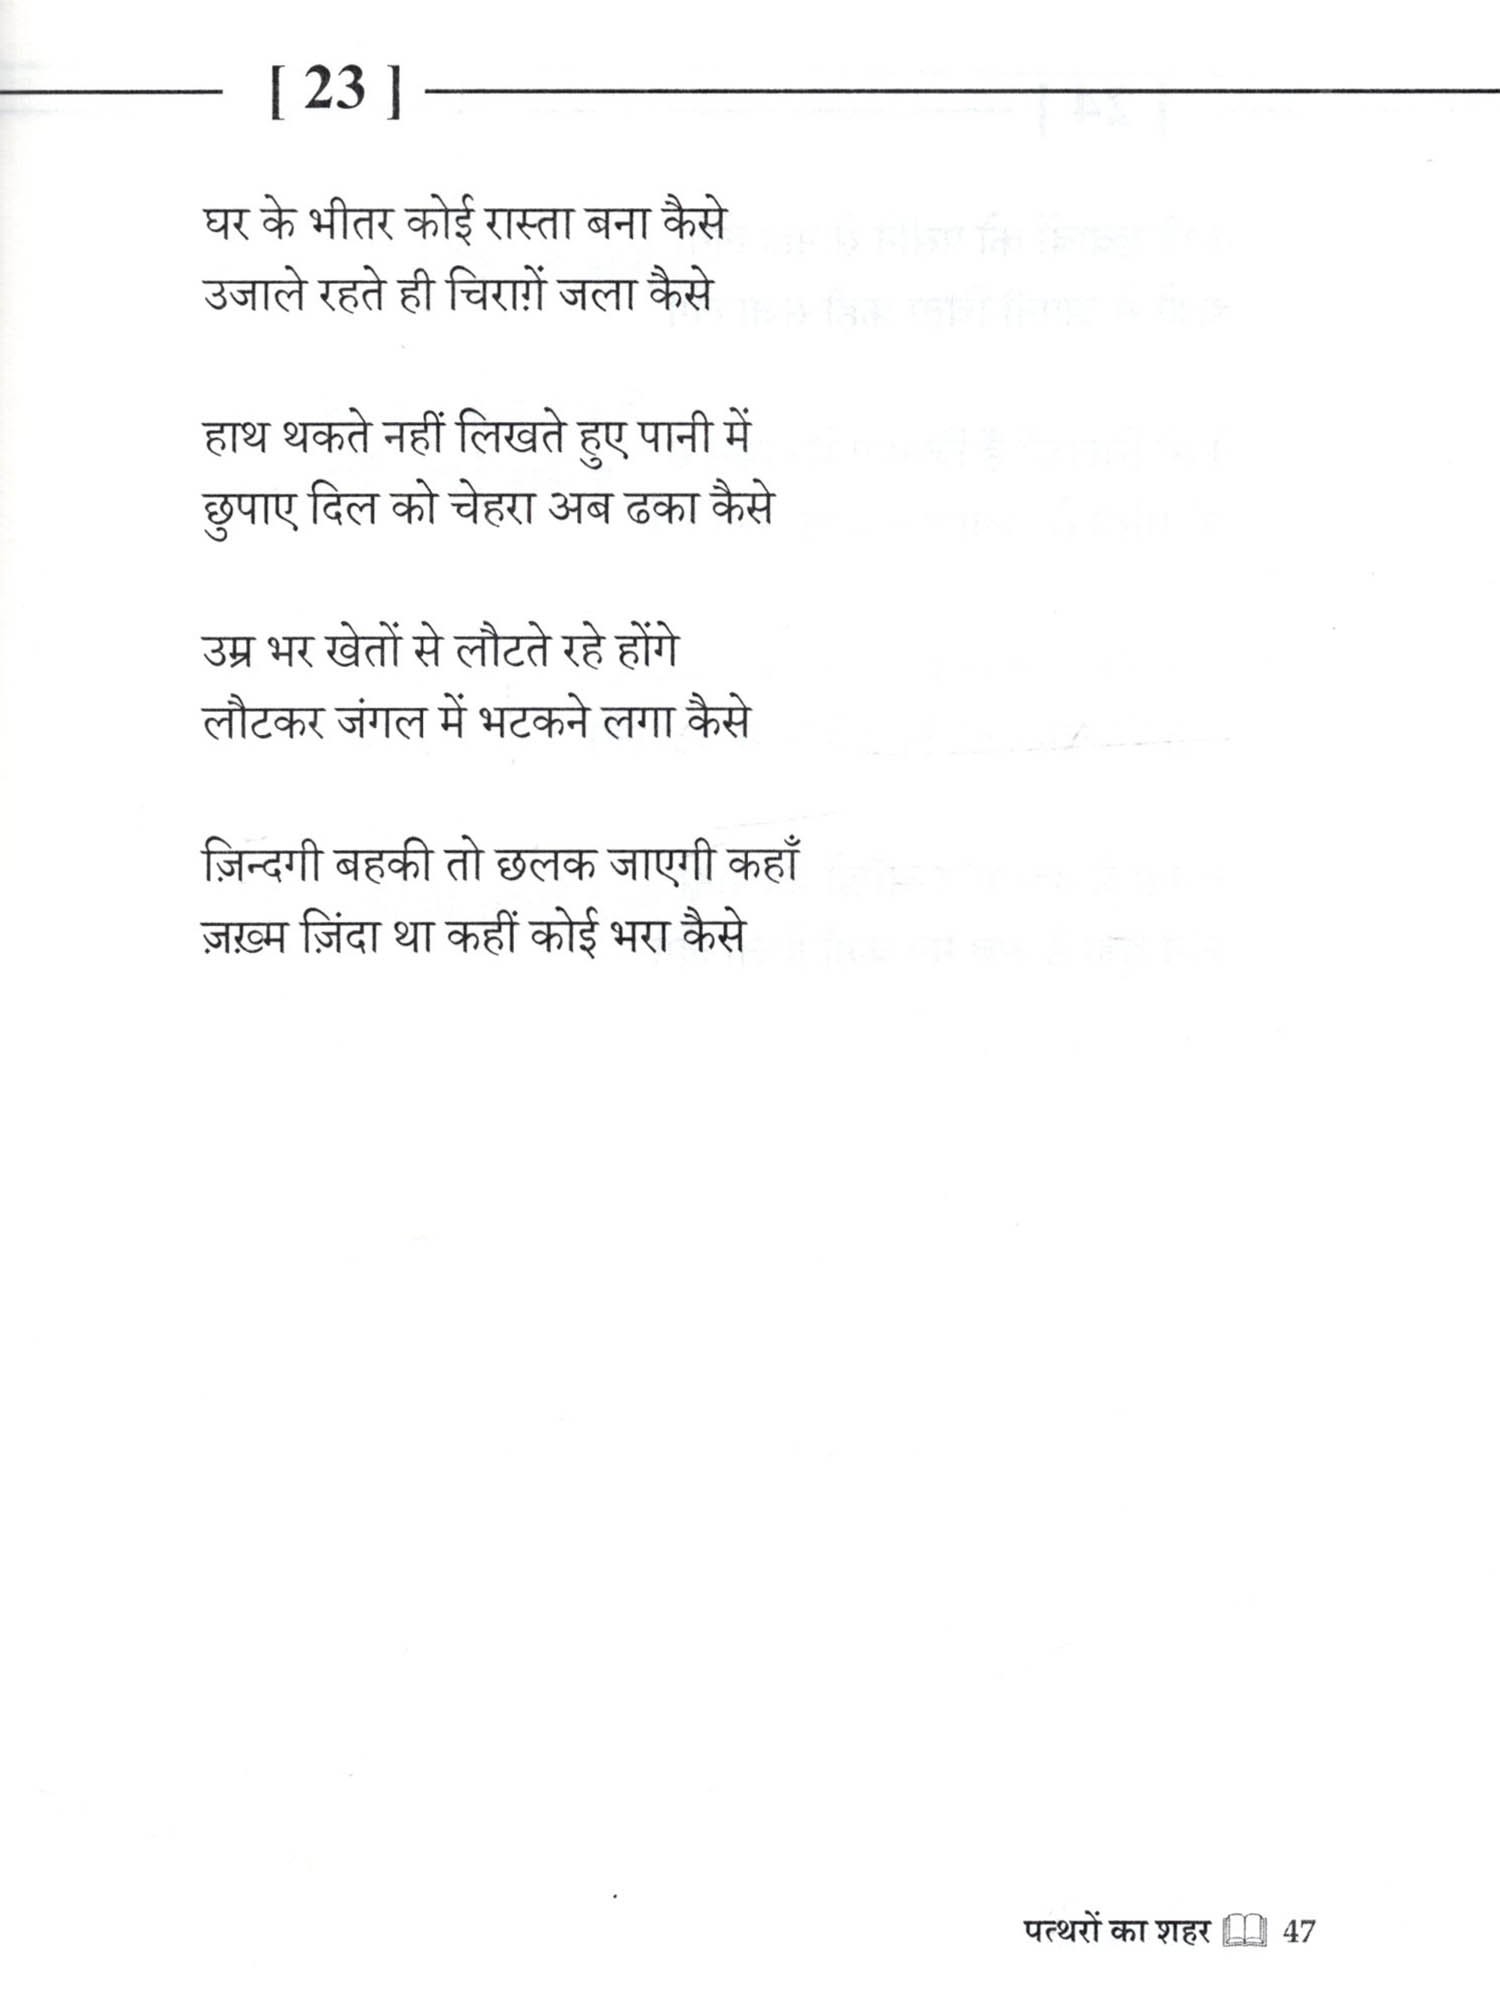 [ 23 ]
घर के भीतर कोई रास्ता बना कैसे
उजाले रहते ही चिराग़ें जला कैसे
हाथ थकते नहीं लिखते हुए पानी में
छुपाए दिल को चेहरा अब ढका कैसे
उम्र भर खेतों से लौटते रहे होंगे
लौटकर जंगल में भटकने लगा कैसे
ज़िन्दगी बहकी तो छलक जाएगी कहाँ
ज़ख़्म ज़िंदा था कहीं कोई भरा कैसे
पत्थरों का शहर 47